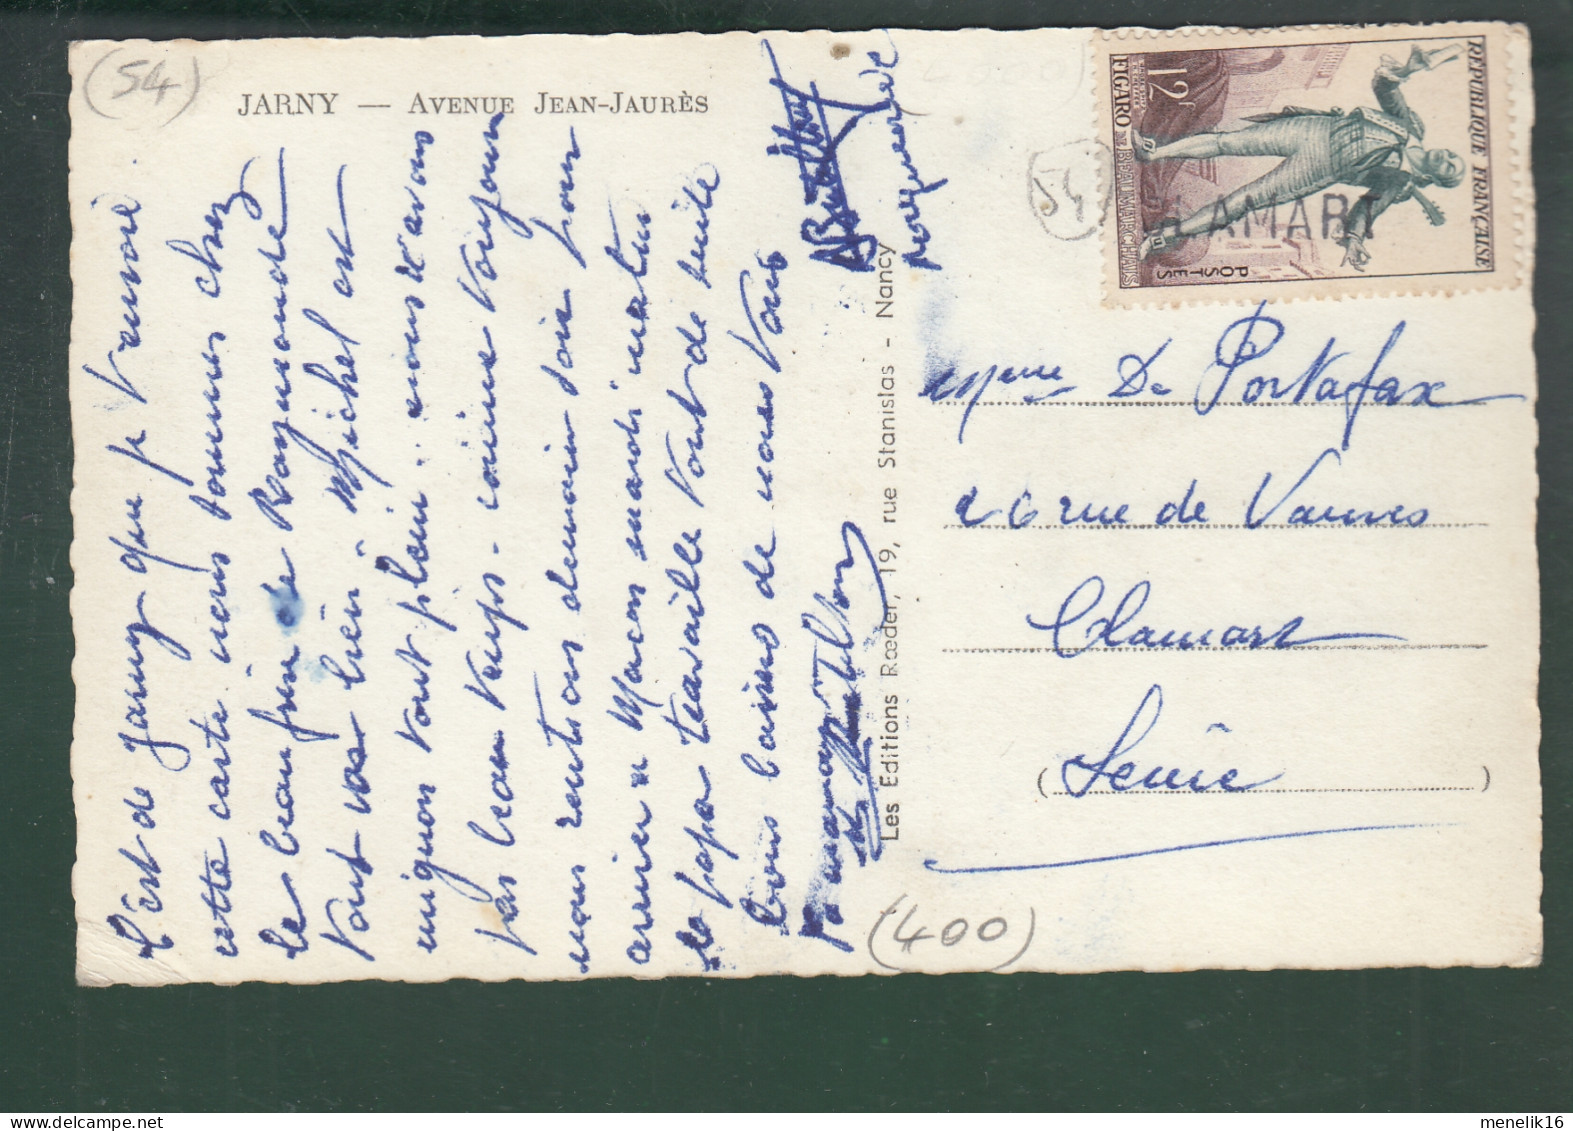 (54)
JARNY — AVENUE JEAN-JAURÈS
C'est de Jarny que je t'envoie
cette carte nous sommes chez
le beau frère de Raymonde
tout va bien Michel est
mignon tout plein. nous n'avons
pas beau temps - comme toujours
nous rentrons demain soir pour
arriver a Macon mardi matin
le papa travaille tout de suite
bons baisers de nous tous
Les Editions Rœder, 19, rue Stanislas - Nancy
54
REPUBLIQUE FRANÇAISE
12F
FIGARO DE BEAUMARCHAIS
POSTES
CLAMART
Mme De Portafax
26 rue de Vanves
Clamart
(Seine)
(400)
menelik16